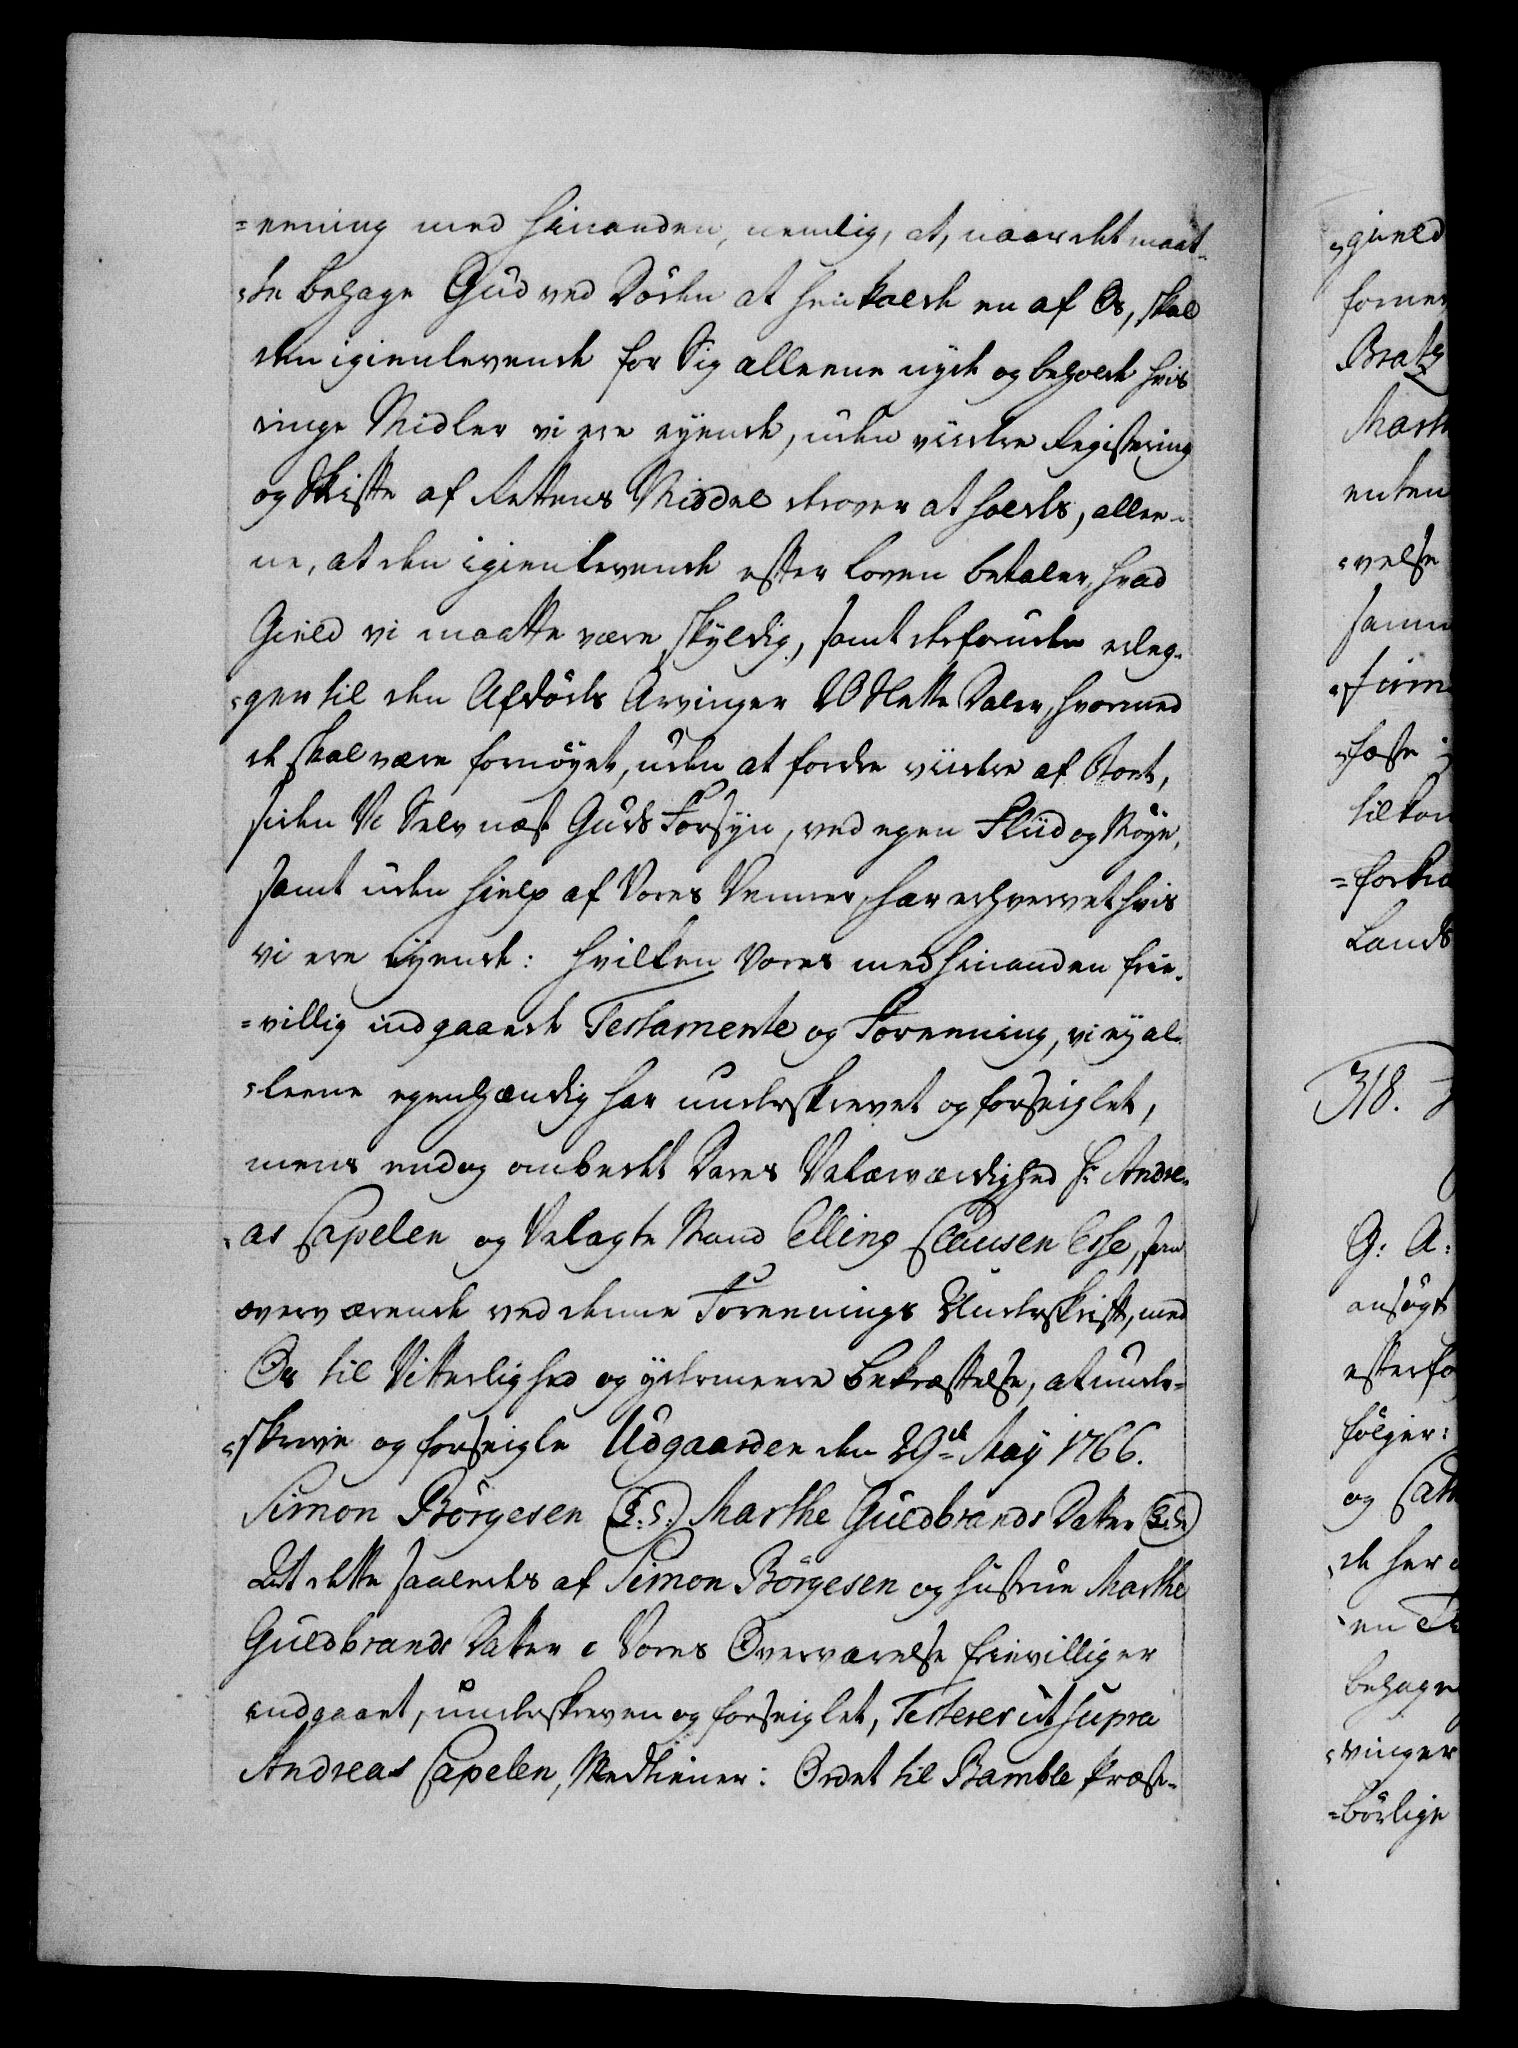 =eening med hinanden, nemlig, at, naar det maat-
=te behage Gud ved Döden at henkalde en af Os, skal
den igienlevende for Sig alleene nyde og beholde hvis
ringe Midler vi ere eyende, uden viidere Registering
og Skifte af Rettens Middel derover at holde, allee-
ne, at den igienlevende efter Loven betaler, hvad
Gield vi maatte være skyldig, samt desforuden erleg-
=ger til den Afdödes Arvinger 20 Slette Daler, hvormed
de skal være fornöyet, uden at fordre viidere af Boet,
siden Vi Selv næst Guds Forsyn, ved egen Fliid og Möye,
samt uden Hielp af Vores Venner, har erhvervet hvis
vi ere eyende: hvilken Vores med hinanden frie-
=villig indgaaede Testamente og Foreening, vi ey al-
=leene egenhændig har underskrevet og forseiglet,
mens endog ombedet Deres Velærværdighed Hr. Andre-
as Capelen og Velagte Mand Elling Clausen Esse, som
overværende ved denne Foreenings Underskrift, med
Os til Vitterlighed og ydermeere Bekræftelse, at under-
=skrive og forseigle Udgaarden den 29de May 1766.
Simon Börgesen (L:S:) Marthe Guldbrands Datter (L:S:)
At dette saaledes af Simon Börgesen og Hustrue Marthe
Guldbrands Datter i Vores Overværelse frievillig er
indgaaet, underskreven og forseiglet, Testerer ut supra
Andreas Capelen, Medtiener: Ordet til Bamble Præste-
=gield
Brats
enten
=velse
=fasse
Lands
318.
G: A:
ansögt
fölger:
og Cath
de her
behage
=vinger
=börlige